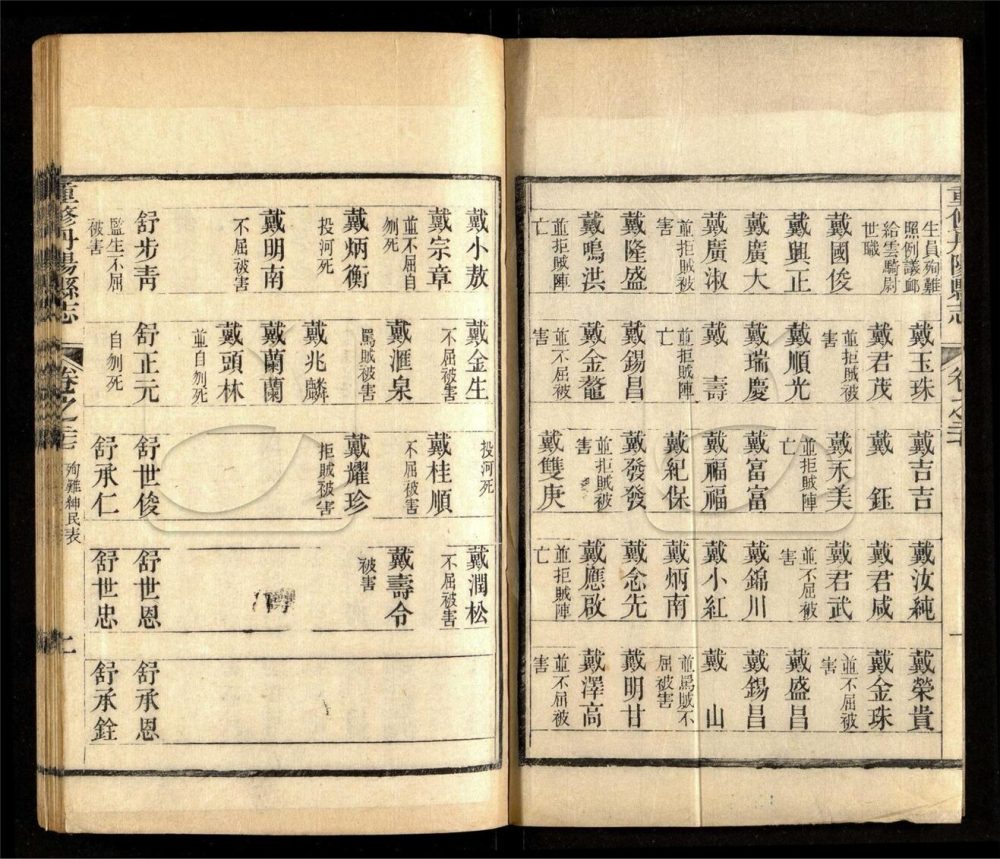 重修丹陽縣志
卷之二十
生員殉難
照例議卹
給雲騎尉
世職
戴國俊
戴興正
戴廣大
戴廣淑
並拒賊被
害
戴隆盛
戴鳴洪
並拒賊陣
亡
戴玉珠
戴君茂
並拒賊被
害
戴順光
戴瑞慶
戴壽
並拒賊陣
亡
戴錫昌
戴金鼇
並不屈被
害
戴吉吉
戴鈺
戴永美
並拒賊陣
亡
戴富富
戴福福
戴紀保
戴發發
並拒賊被
害
戴雙庚
戴汝純
戴君咸
戴君武
並不屈被
害
戴錦川
戴小紅
戴炳南
戴念先
戴應啟
並拒賊陣
亡
戴榮貴
戴金珠
並不屈被
害
戴盛昌
戴錫昌
戴山
並罵賊不
屈被害
戴明甘
戴澤高
並不屈被
害
戴小敖
戴宗章
並不屈自
刎死
戴炳衡
投河死
戴明南
不屈被害
舒步青
監生不屈
被害
戴金生
不屈被害
戴滙泉
罵賊被害
戴兆麟
戴蘭蘭
戴頭林
並自刎死
舒正元
自刎死
投河死
戴桂順
不屈被害
戴耀珍
拒賊被害
舒世俊
舒承仁
戴潤松
不屈被害
戴壽令
被害
舒世恩
舒世忠
舒承恩
舒承銓
重修丹陽縣志
卷之二十
殉難紳民表